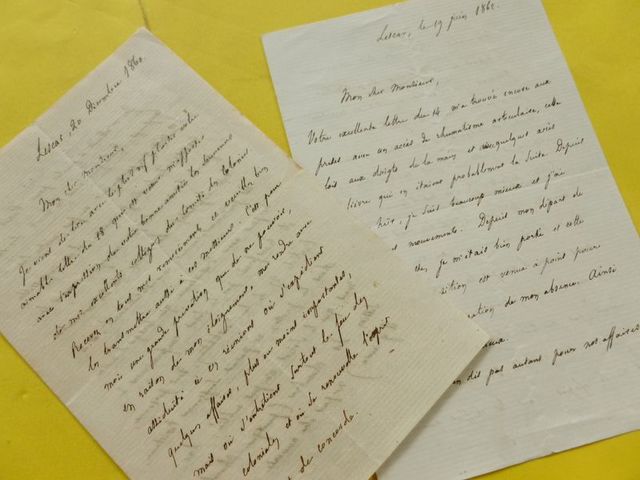 Lescar, 20 Décembre 1860.
Mon cher Monsieur,
Je viens de lire avec le plus vif plaisir votre
aimable lettre du 18 qui m'apporte
avec l'expression de votre bonne amitié les
de mes excellents collègues du Comité des Colonies.
Recevez en tous mes remerciements et veuillez bien
les transmettre aussi à ces messieurs. C'est pour
moi une grande privation que de ne pouvoir,
en raison de mon éloignement, me rendre avec
assiduité à ces réunions où s'expédient
quelques affaires, plus ou moins importantes,
mais où s'entretient surtout le feu des
colonies et où se renouvelle l'esprit
de concorde.
Lescar, le 19 juin 186
Mon cher Monsieur,
Votre excellente lettre du 14 m'a trouvé encore aux
prises avec un accès de rhumatisme articulaire, cette
fois aux doigts de la main et quelques accès
fièvre qui en étaient probablement la suite. Depuis
, je suis beaucoup mieux et j'ai
mouvements. Depuis mon départ de
, je m'étais bien porté et cette
est venue à point pour
de mon absence. Ainsi
dis pas autant pour nos affaires